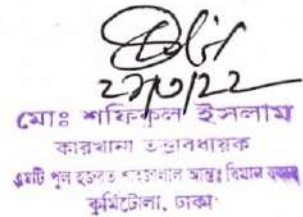 ২৭/৩/২২
মোঃ শফিকুল ইসলাম
কারখানা তত্ত্বাবধায়ক
এমটি পুল হজরত শাহজালাল আন্তঃ বিমান বন্দর
কুর্মিটোলা, ঢাকা